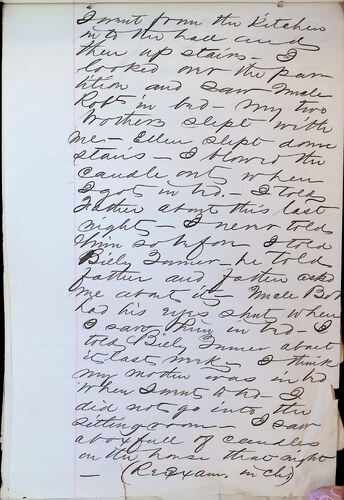 I went from the Kitchen
into the hall and
then up stairs - I
looked over the par
tition and saw Uncle
Rob in bed - My two
brothers slept with
me - Ellen slept down
stairs - I blowed the
candle out when
I got in bed. - I told
Father about this last
night - I never told
him so before I told
Billy Turner - he told
father and father asked
me about it - Uncle Bob
had his eyes shut when
I saw him in bed - I
told Billy Turner about
it last week - I think
my mother was in bed
when I went to bed - I
did not go into the
sitting room - I saw
a box full of candles
in the house that night
- (ReExam. in Ch)